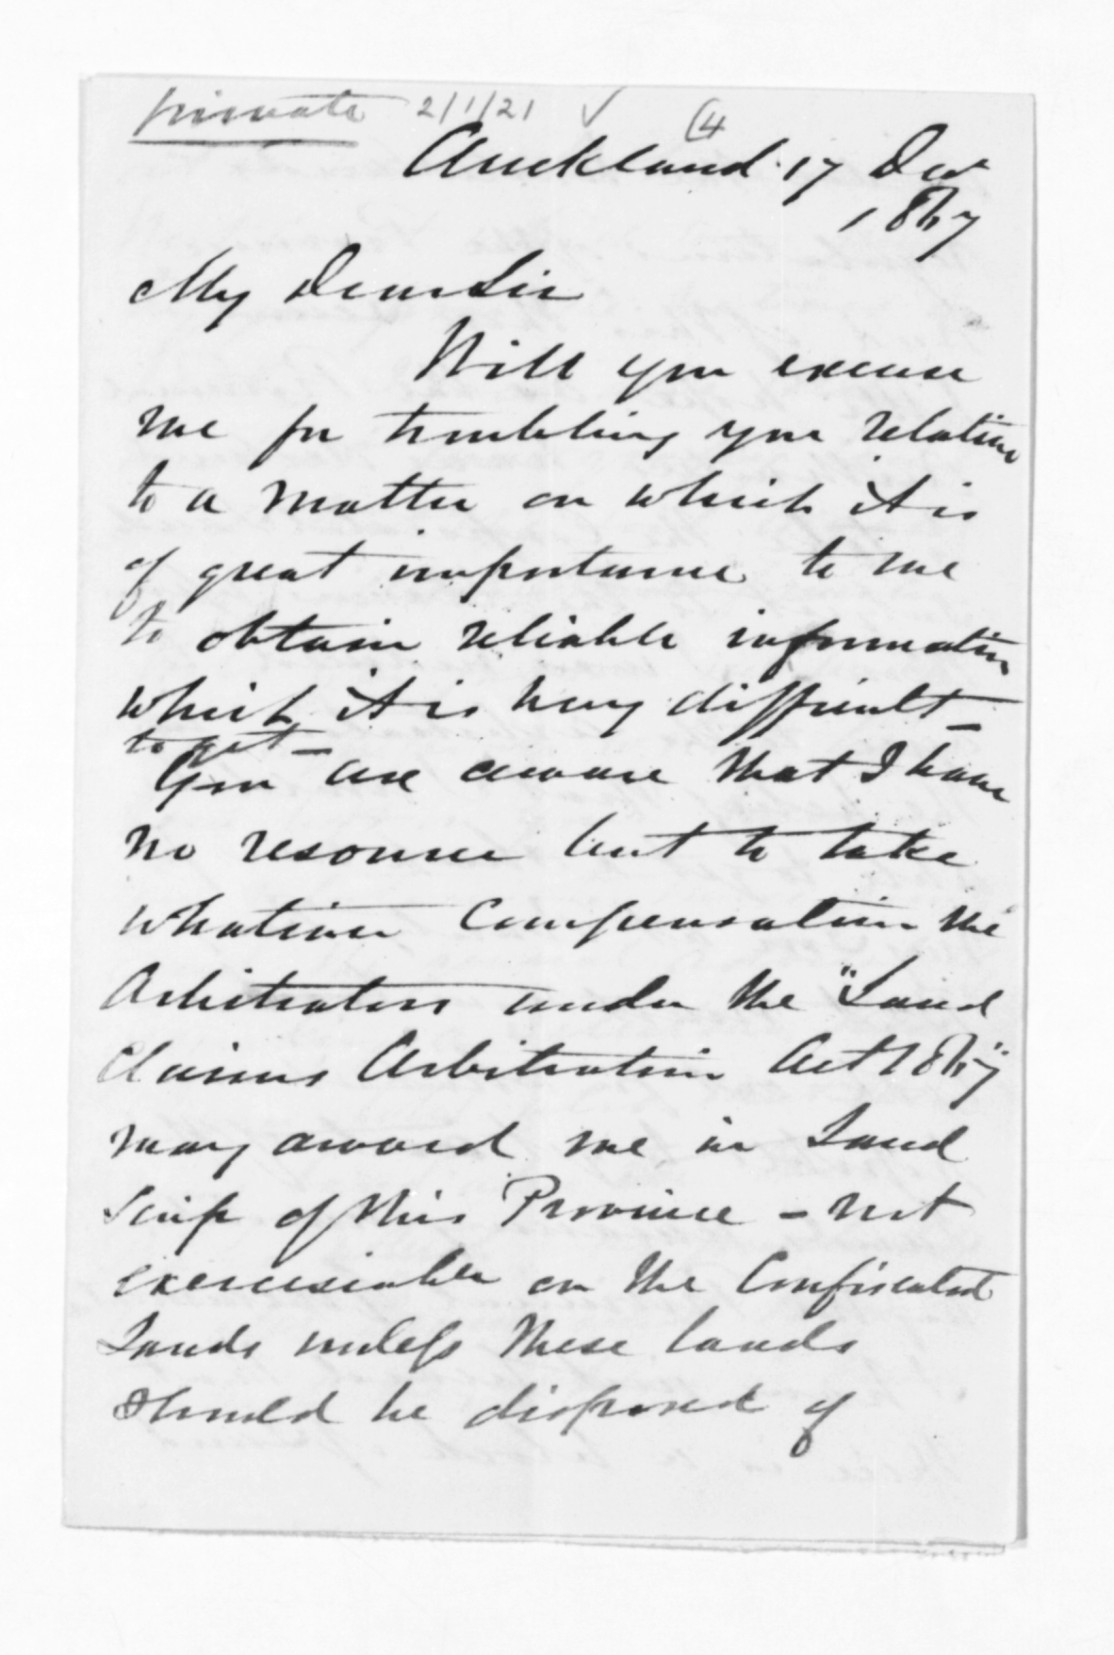 private 2/1/21 ✓ (4
Auckland 17 Dec
1867
My Dear Sir
Will you excuse
me for troubling you relative
to a matter on which it is
of great importance to me
to obtain reliable information
which it is very difficult
to get –
You are aware that I have
no resource but to take
whatever Compensation the
Arbitrators under the "Land
Claims Arbitration Act 1867"
may award me in Land
Scrip of this Province – not
exercisable on the Confiscated
Lands unless these lands
should be disposed of